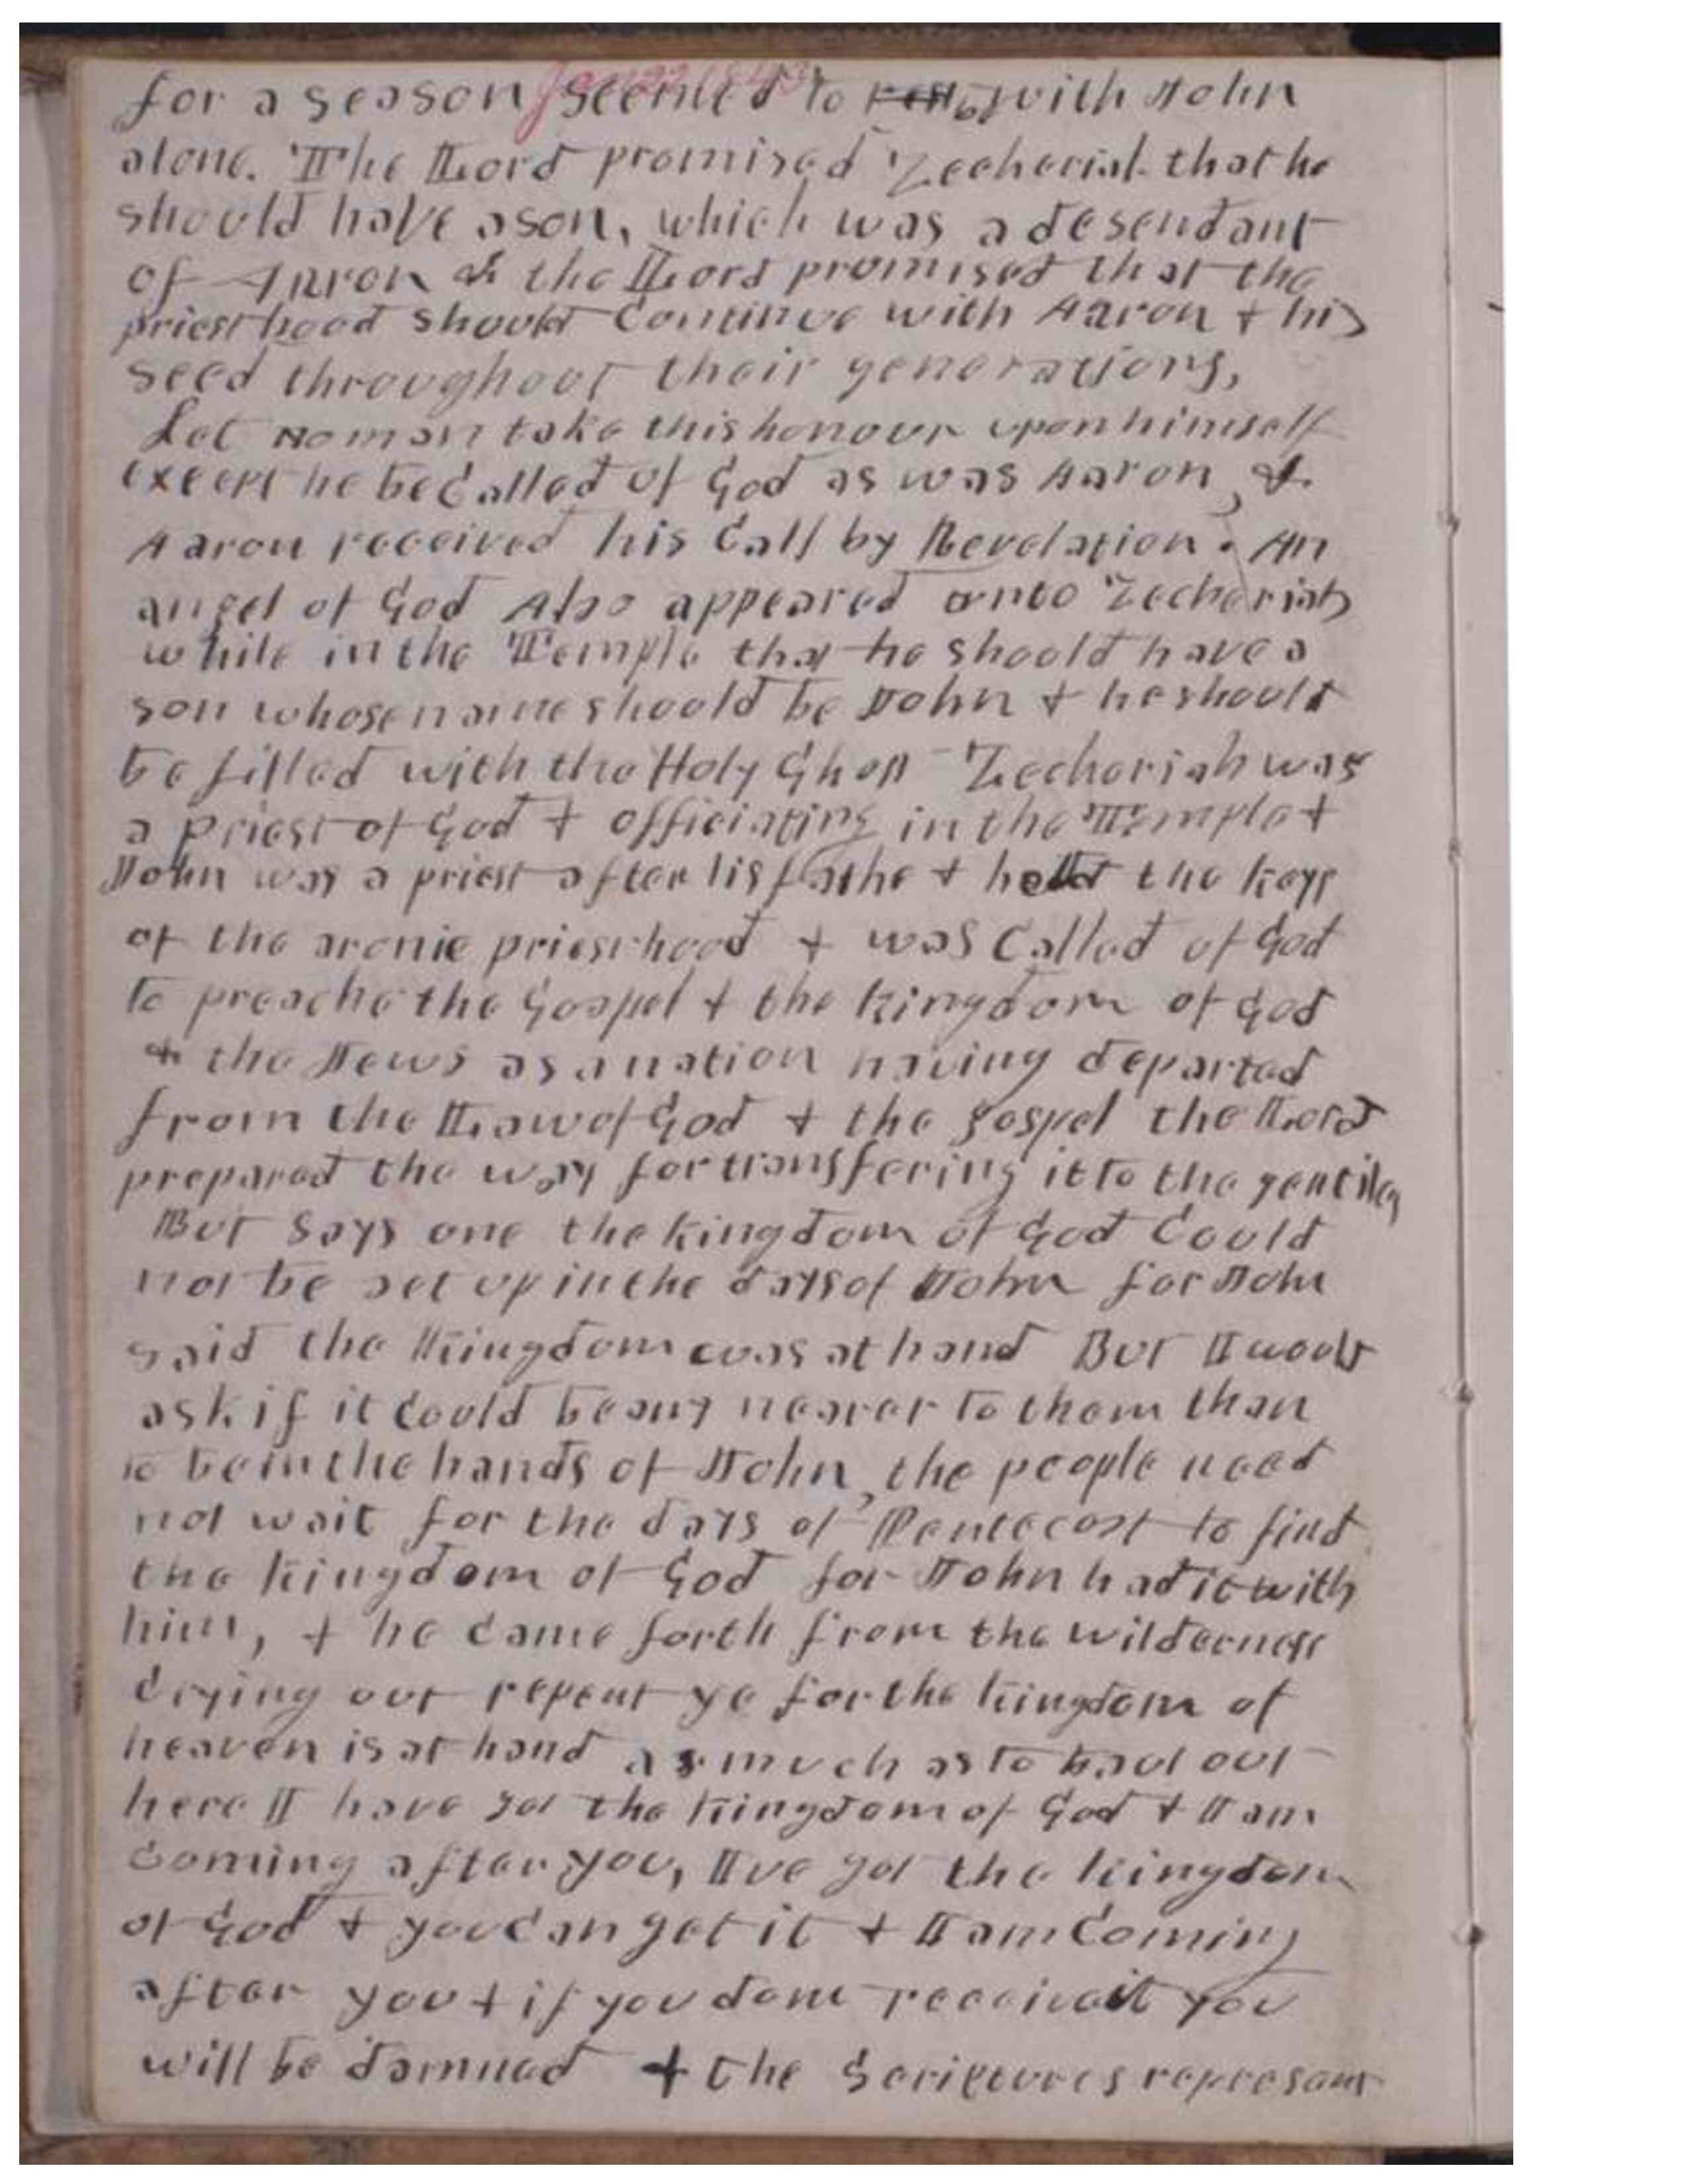 Jan 22 1843
for a season seemed to rest be with John
alone. The Lord promised Zecheriah that he
should have a son, which was a desendant
of Aaron & the Lord promised that the
priesthood should Continue with Aaron & his
seed throughout their generations,
Let no man take this honour upon himself
except he be Called of God as was Aaron, &
Aaron received his Call by Revelation. An
angel of God Also appeared unto Zecheriah
while in the Temple that he should have a
son whose name should be John & he should
be filled with the Holy Ghost Zecheriah was
a priest of God & officiating in the Temple &
John was a priest after his fathe & held the keys
of the aronic priesthood & was Called of God
to preache the Gospel & the kingdom of God
& the Jews as a nation having departed
from the Law of God & the gospel the Lord
prepared the way for transfering it to the gentiles
But Says one the kingdom of God Could
not be set up in the days of John for John
said the Kingdom was at hand But I would
ask if it Could be any nearer to them than
to be in the hands of John, the people need
not wait for the days of Pentecost to find
the kingdom of God for John had it with
him, & he Came forth from the wilderness
Crying out repent ye for the kingdom of
heaven is at hand as much as to baul out
here I have got the kingdom of God & I am
Coming after you, Ive got the kingdom
of God & you Can get it & I am Coming
after you & if you dont receive it you
will be damned & the Scriptures represent